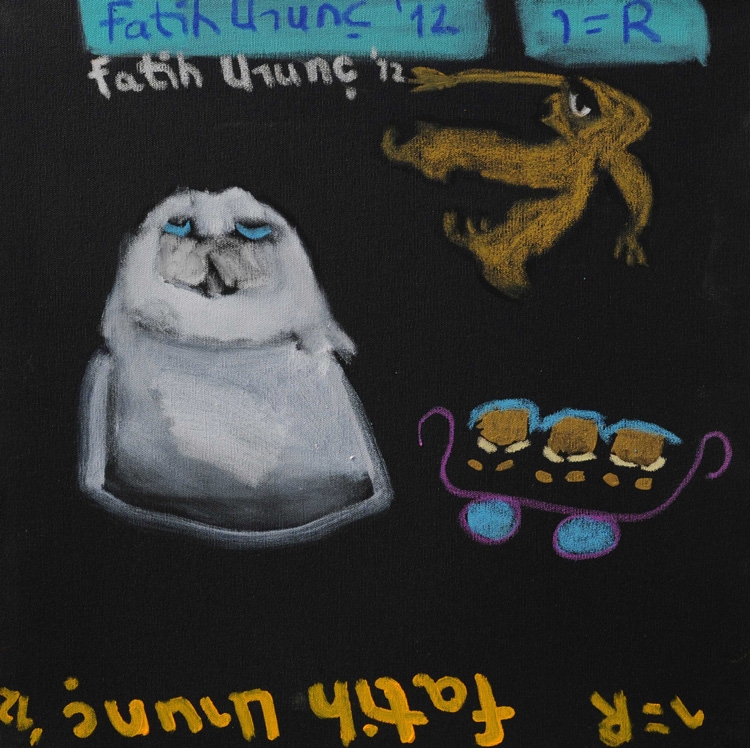 Fatih Urunç '12 1=R
Fatih Urunç '12
1=R Fatih Urunç '12